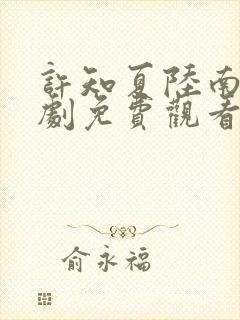 許知夏陸南
劇免費觀看
俞永福